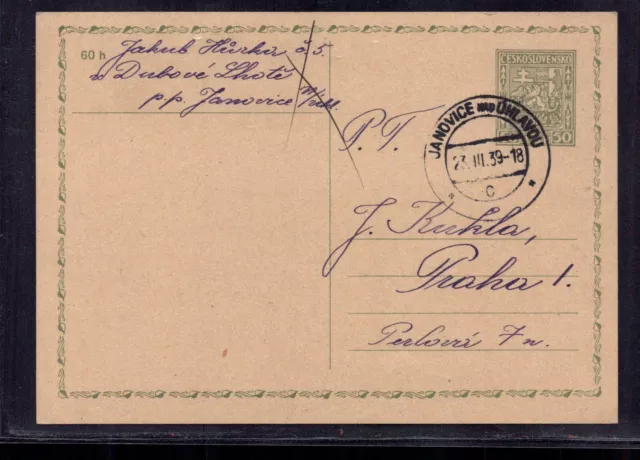 60 h
Jakub Hůrka č 5.
v Dubové Lhotě
p.p. Janovice n/Úhl.
ČESKOSLOVENSKO
50
JANOVICE NAD ÚHLAVOU
23.III.39-18
C
P. T.
J. Kukla,
Praha 1.
Perlová 7 n.